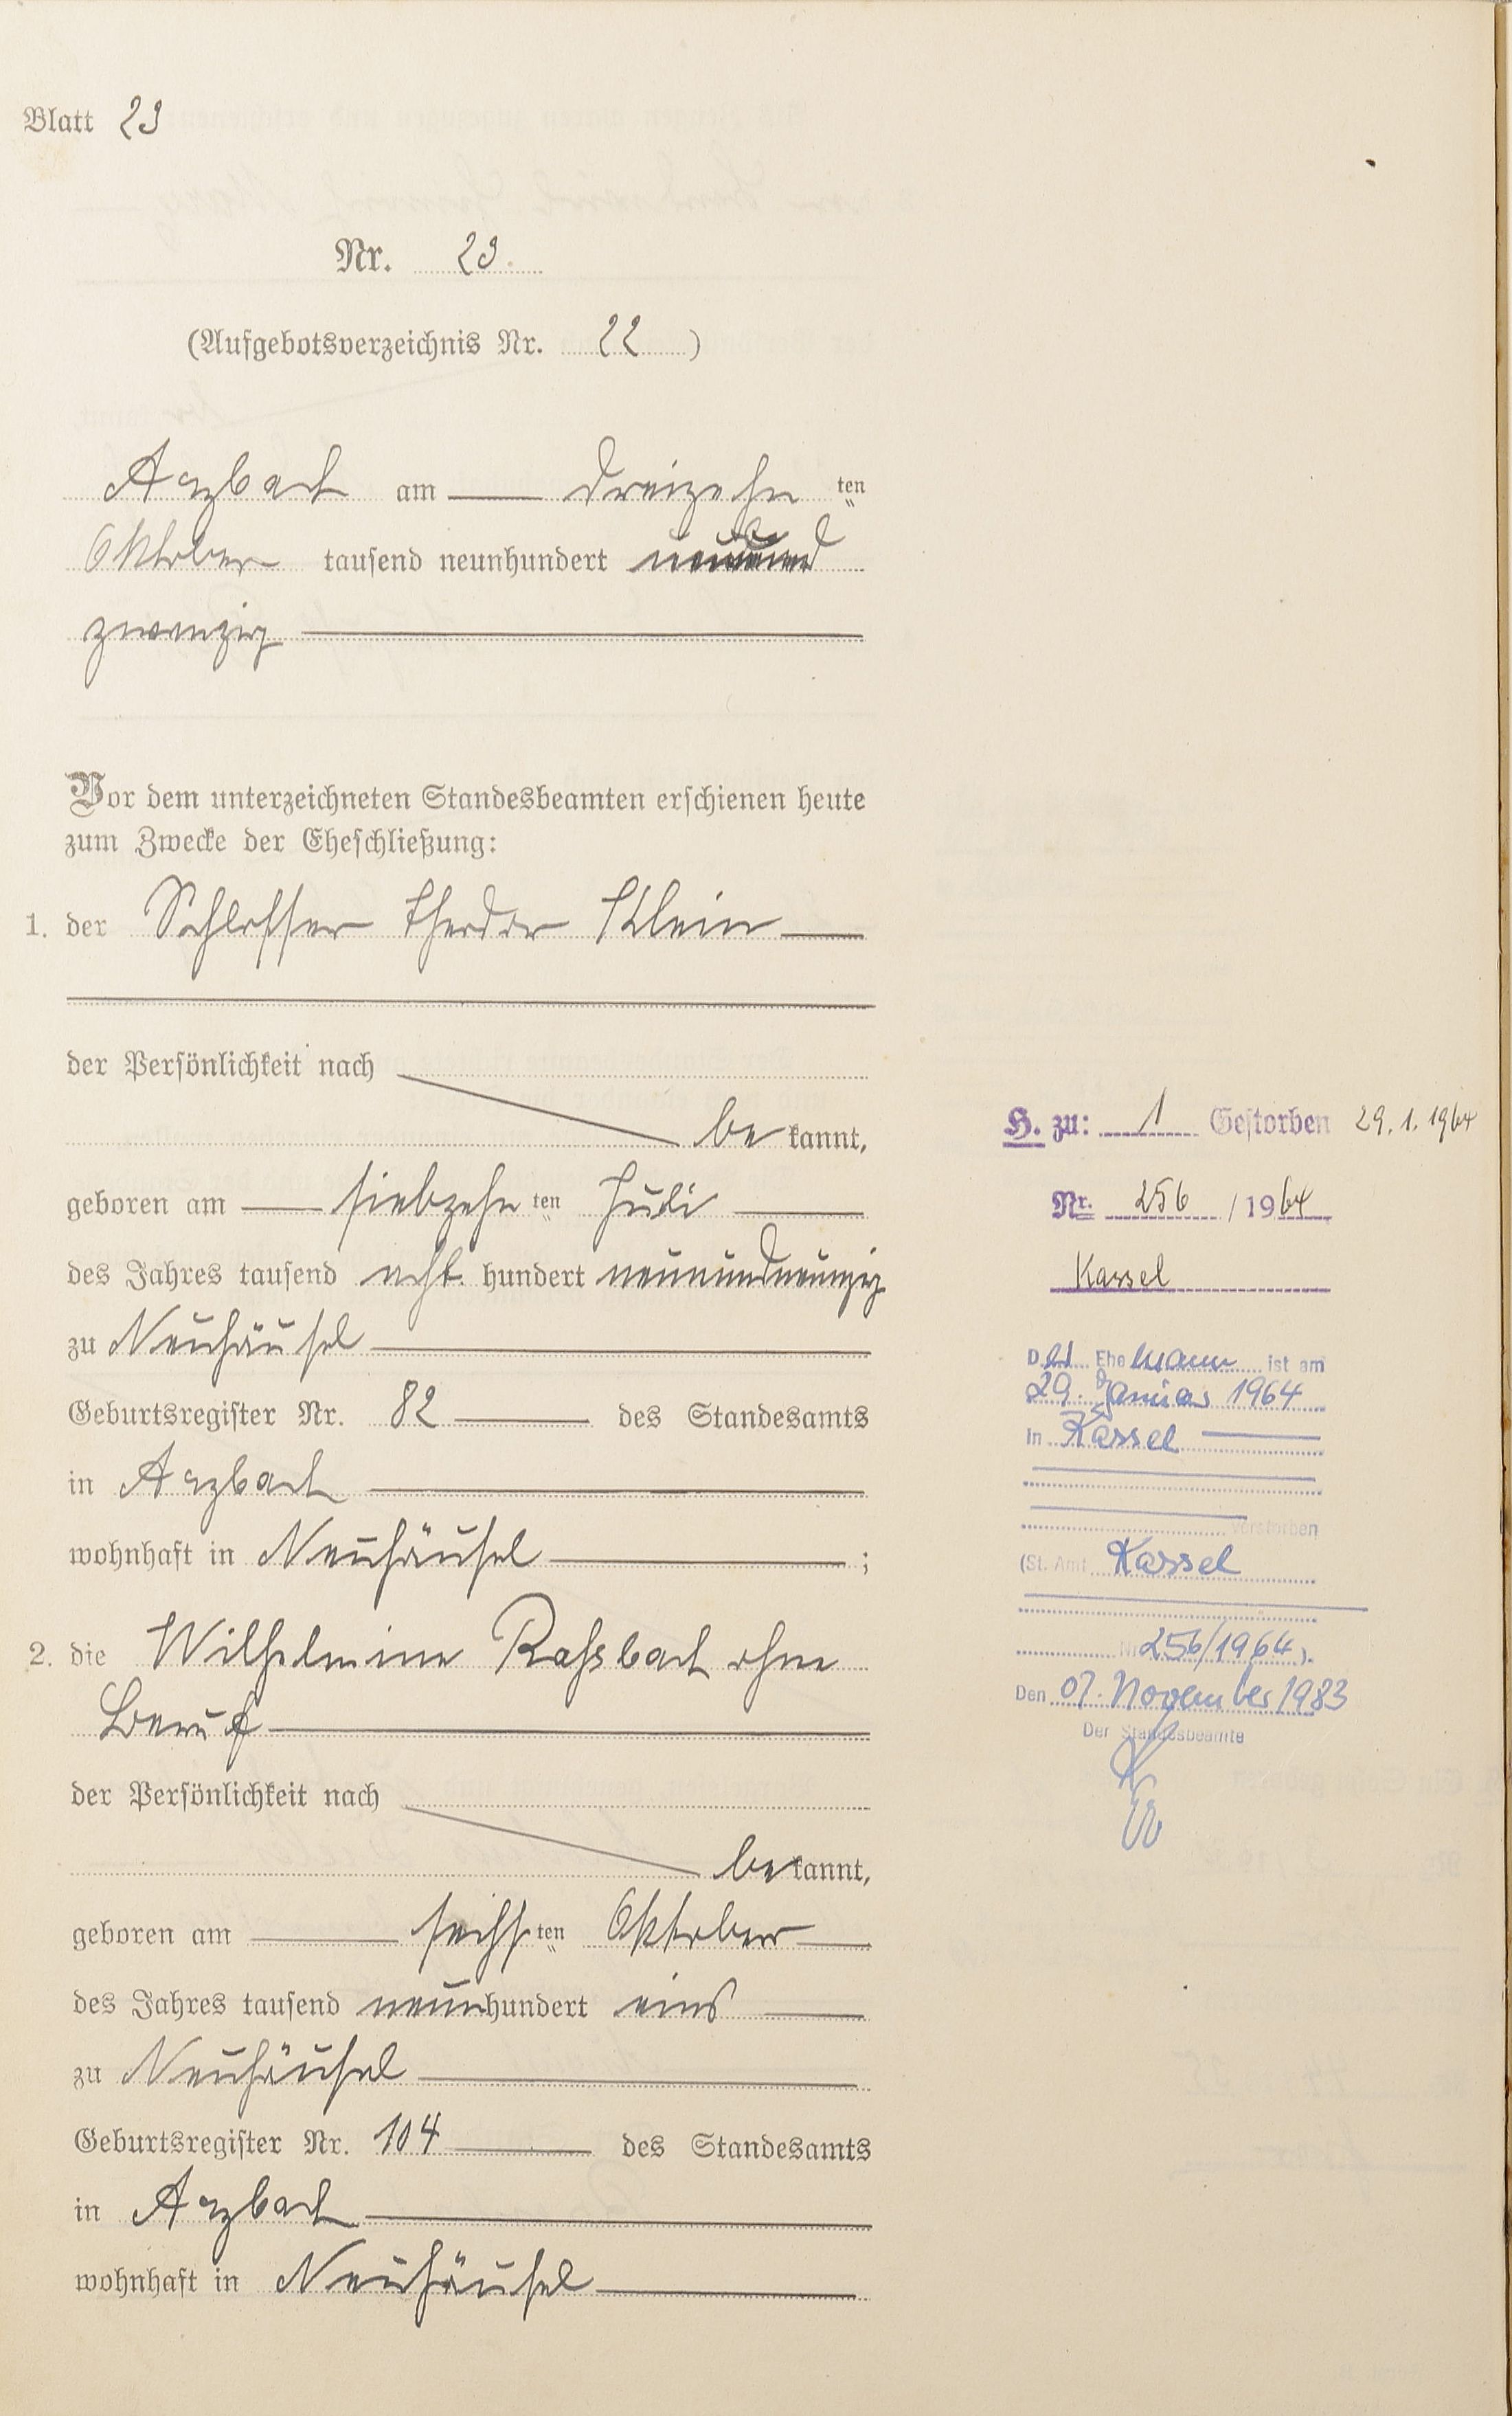 Blatt 23
Nr. 23.
(Aufgebotsverzeichnis Nr. 22 )
Arzbach am dreizehn ten
Oktober tausend neunhundert
zwanzig
Vor dem unterzeichneten Standesbeamten erschienen heute
zum Zwecke der Eheschließung:
1. der Schlosser Theodor Klein
der Persönlichkeit nach
be kannt,
geboren am siebzehn ten Juli
des Jahres tausend acht hundert neunundneunzig
zu Neuhäusel
Geburtsregister Nr. 82 des Standesamts
in Arzbach
wohnhaft in Neuhäusel ;
2. die Wilhelmine Raßbach ohne
Beruf
der Persönlichkeit nach
be kannt,
geboren am sechs ten Oktober
des Jahres tausend neun hundert eins
zu Neuhäusel
Geburtsregister Nr. 104 des Standesamts
in Arzbach
wohnhaft in Neuhäusel
H. zu: 1 Gestorben 29.1.1964
Nr. 256 / 1964
Kassel
Der Ehemann ist am
29. Januar 1964
in Kassel
verstorben
(St. Amt Kassel
Nr 256/1964).
Den 07. November 1983
Der Standesbeamte